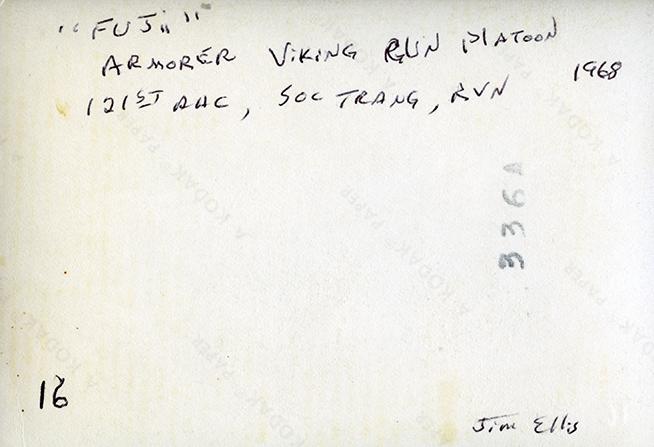 "FUJii"
ARMORER VIKING GUN PLATOON
1968
121ST AHC, SOC TRANG, RVN
336A
16
Jim Ellis
A KODAK PAPER
A KODAK PAPER
A KODAK PAPER
A KODAK PAPER
A KODAK PAPER